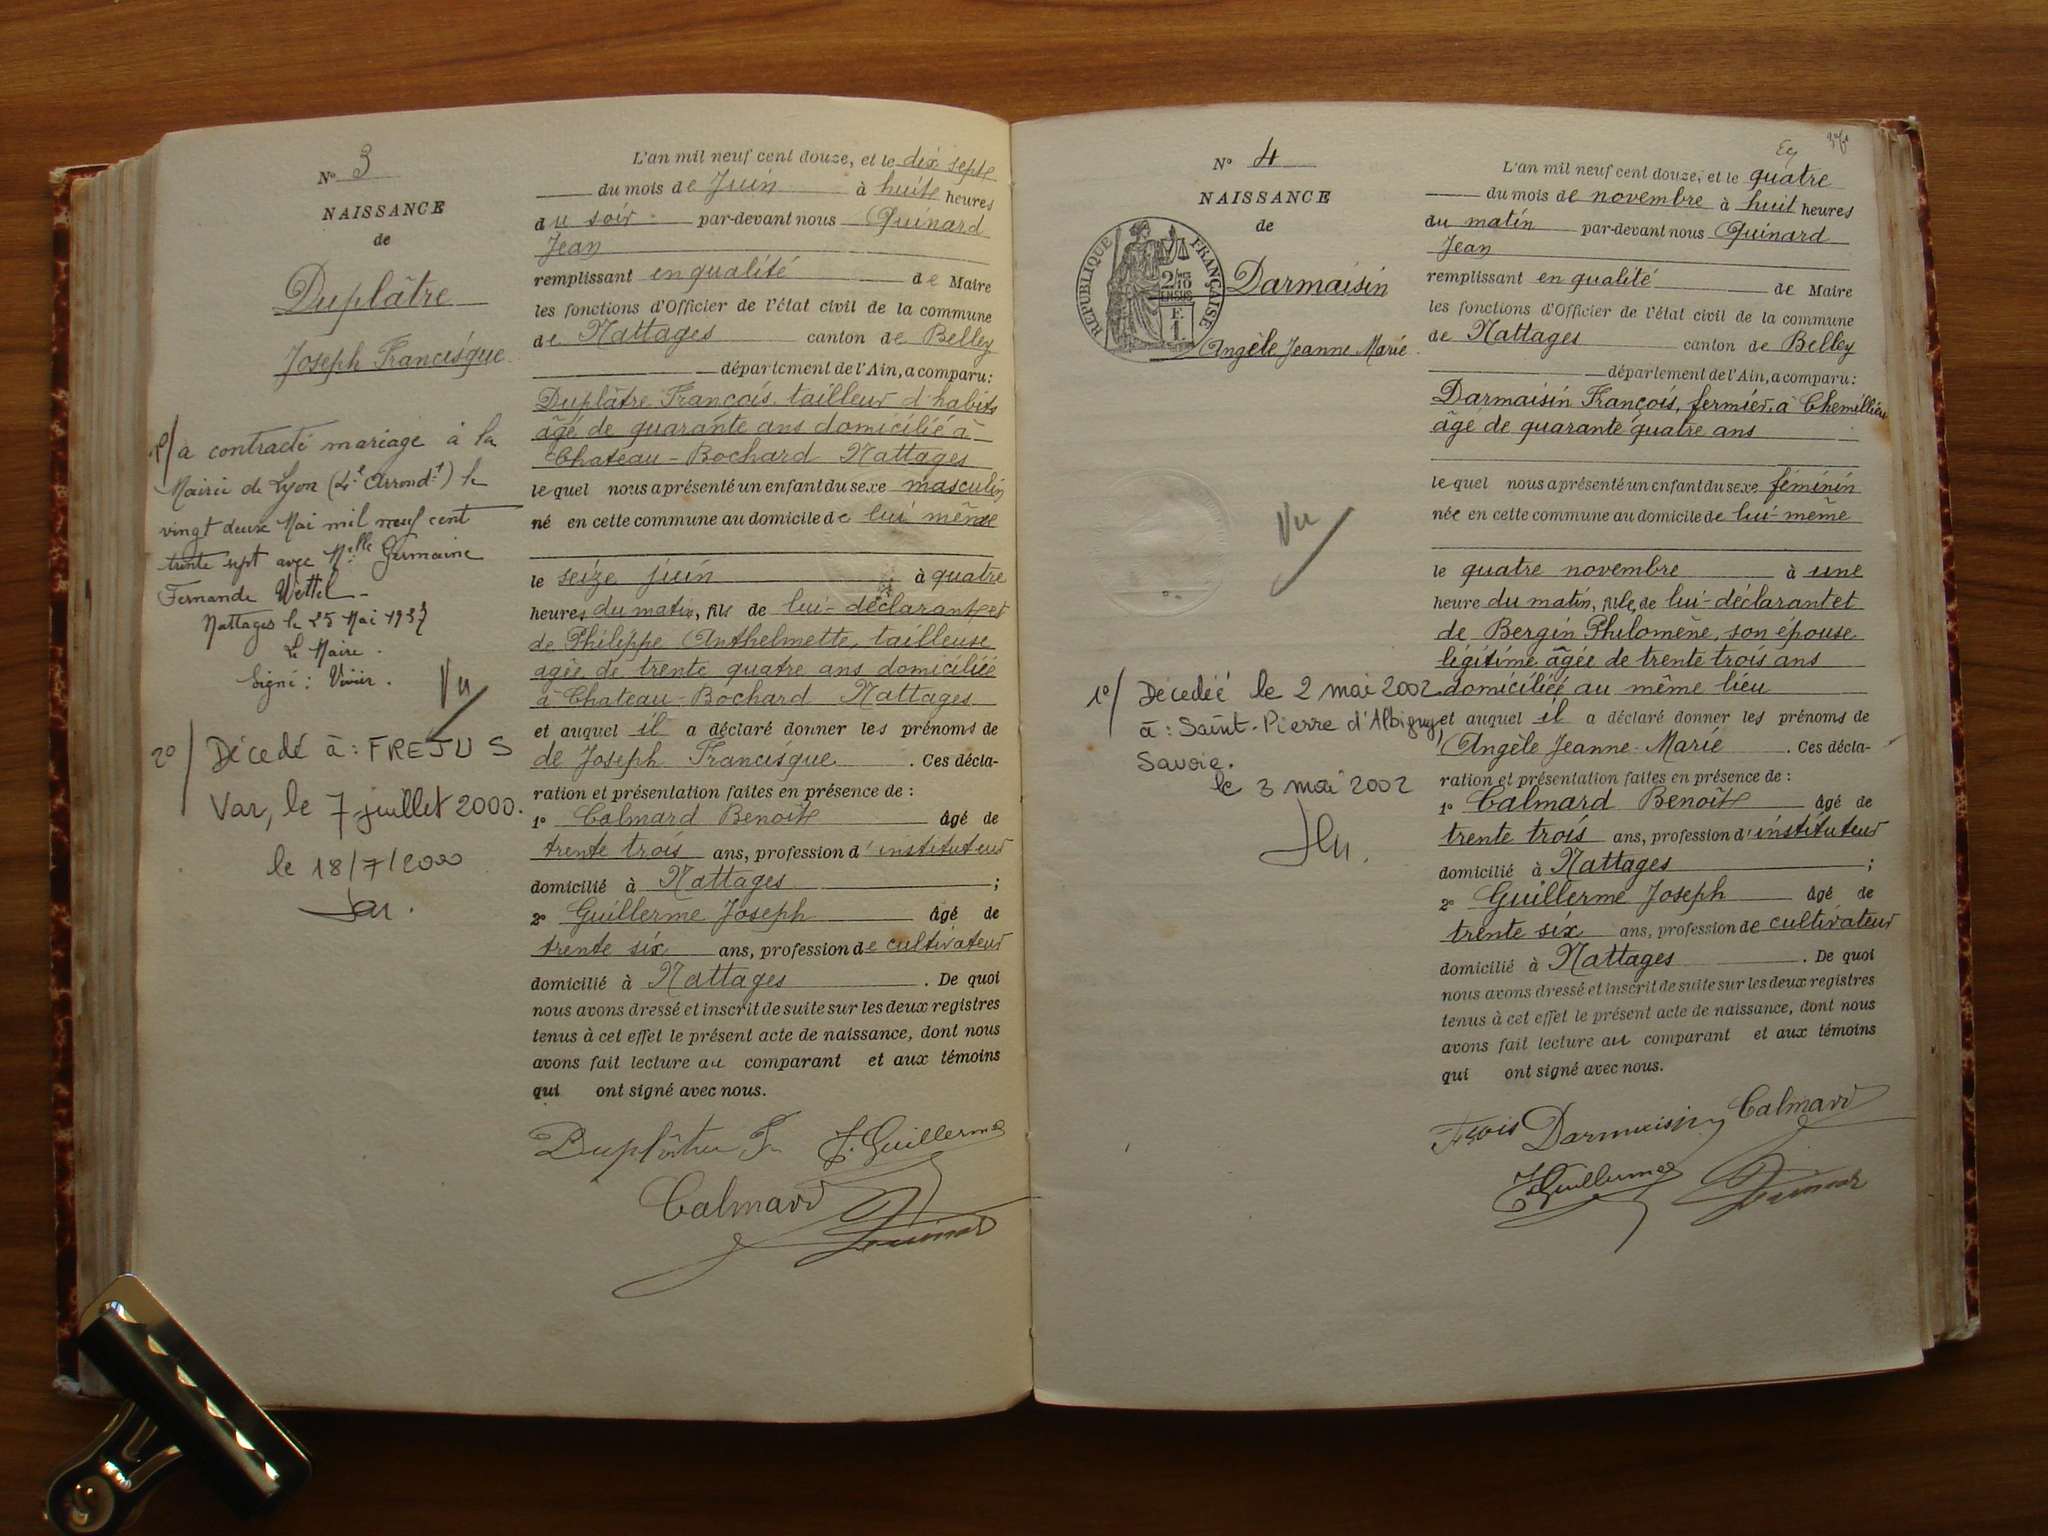 N° 3
NAISSANCE
de
Duplâtre
Joseph Francisque
1°/ a contracté mariage à la
Mairie de Lyon (4e Arrondt) le
vingt deux Mai mil neuf cent
trente sept avec Melle Germaine
Fernande Wettel -
Nattages le 25 Mai 1937
Le Maire.
Signé : Vivier.
Vu
2°/ Décedé à : FREJUS
Var, le 7 juillet 2000.
le 18/7/2000
L'an mil neuf cent douze, et le dix sept
du mois de Juin à huit heures
du soir par-devant nous Quinard
Jean
remplissant en qualité de Maire
les fonctions d'Officier de l'état civil de la commune
de Nattages canton de Belley
département de l'Ain, a comparu :
Duplâtre François, tailleur d'habits
âgé de quarante ans domicilié à
Château-Bochard Nattages
le quel nous a présenté un enfant du sexe masculin
né en cette commune au domicile de lui même
le seize juin à quatre
heures du matin, fils de lui-déclarant et
de Philippe Anthelmette, tailleuse
agée de trente quatre ans domiciliée
à Chateau-Bochard Nattages
et auquel il a déclaré donner les prénoms de
de Joseph Francisque . Ces décla-
ration et présentation faites en présence de :
1° Calmard Benoît âgé de
trente trois ans, profession d'instituteur
domicilié à Nattages ;
2° Guillerme Joseph âgé de
trente six ans, profession de cultivateur
domicilié à Nattages . De quoi
nous avons dressé et inscrit de suite sur les deux registres
tenus à cet effet le présent acte de naissance, dont nous
avons fait lecture au comparant et aux témoins
qui ont signé avec nous.
Duplâtre F. J. Guillerme
Calmard Quinard
N° 4
NAISSANCE
de
RÉPUBLIQUE FRANÇAISE
Darmaisin
Angèle Jeanne Marie
Vu
1°/ Décedée le 2 mai 2002
à : Saint-Pierre d'Albigny,
Savoie.
le 3 mai 2002
L'an mil neuf cent douze, et le quatre
du mois de novembre à huit heures
du matin par-devant nous Quinard
Jean
remplissant en qualité de Maire
les fonctions d'Officier de l'état civil de la commune
de Nattages canton de Belley
département de l'Ain, a comparu :
Darmaisin François, fermier, à Chemillieu
âgé de quarante quatre ans
le quel nous a présenté un enfant du sexe féminin
née en cette commune au domicile de lui-même
le quatre novembre à une
heure du matin, fille de lui-déclarant et
de Bergin Philomène, son épouse
légitime âgée de trente trois ans
domiciliée au même lieu
et auquel il a déclaré donner les prénoms de
Angèle Jeanne-Marie . Ces décla-
ration et présentation faites en présence de :
1° Calmard Benoît âgé de
trente trois ans, profession d'instituteur
domicilié à Nattages ;
2° Guillerme Joseph âgé de
trente six ans, profession de cultivateur
domicilié à Nattages . De quoi
nous avons dressé et inscrit de suite sur les deux registres
tenus à cet effet le présent acte de naissance, dont nous
avons fait lecture au comparant et aux témoins
qui ont signé avec nous.
Fçois Darmaisin Calmard
J. Guillerme Quinard